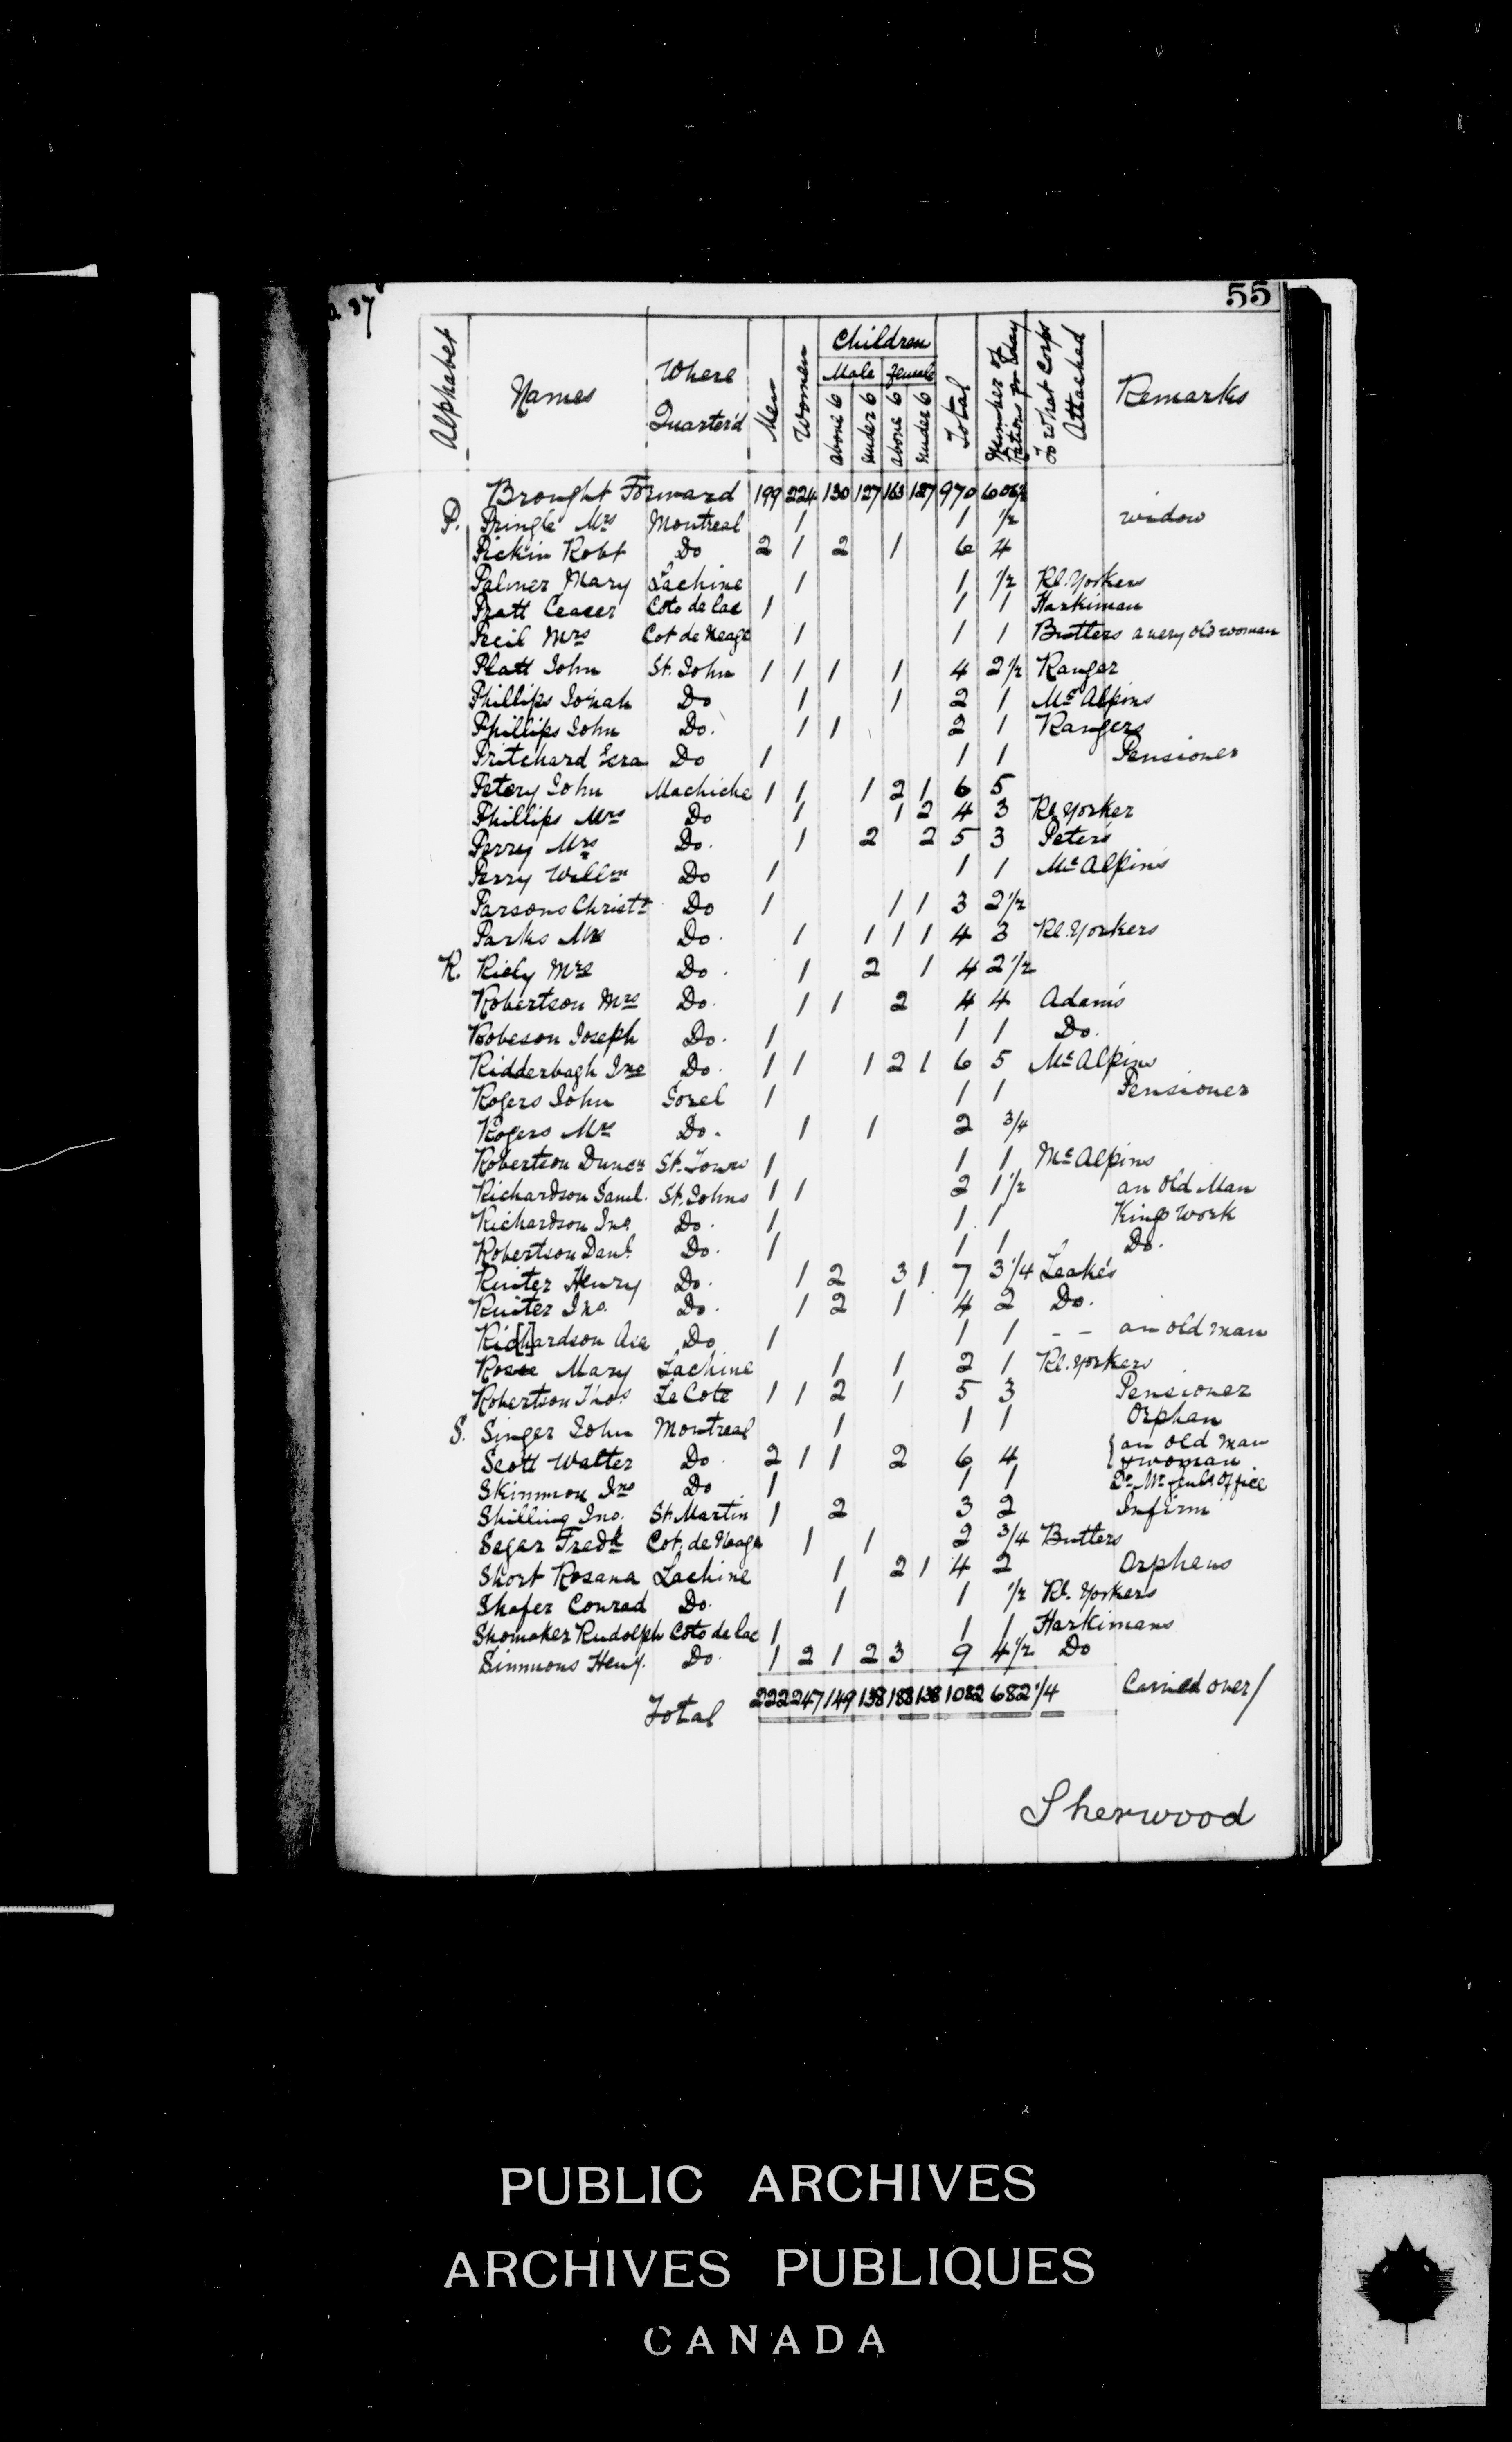 55
Alphabet Names Where Quarter'd Men Women Children Male Female above 6 under 6 above 6 under 6 Total Number of Rations pr day To What Corps Attached Remarks
Brought Forward 199 224 130 127 163 127 970 606½
P. Pringle Mrs Montreal 1 1 ½ widow
Pickin Robt Do 2 1 2 1 6 4
Palmer Mary Lachine 1 1 ½ Rl. Yorkers
Pratt Ceaser Coto de lac 1 1 1 Harkiman
Pecil Mrs Cot de Neage 1 1 1 Butters a very old woman
Platt John St. John 1 1 1 1 4 2½ Ranger
Phillips Jonah Do 1 1 2 1 Mc Alpins
Phillips John Do. 1 1 2 1 Rangers
Pritchard Do 1 1 1 Pensioner
Petery John Machiche 1 1 1 2 1 6 5
Phillips Mrs Do 1 1 2 4 3 Rl. Yorker
Perry Mrs Do. 1 2 2 5 3 Peters
Perry Willm Do 1 1 1 Mc Alpin's
Parsons Christr Do 1 1 1 3 2½
Parks Mrs Do. 1 1 1 1 4 3 Rl. Yorkers
R. Riely Mrs Do. 1 2 1 4 2½
Robertson Mrs Do. 1 1 2 4 4 Adam's
Robeson Joseph Do. 1 1 1 Do.
Ridderbagh Jno Do. 1 1 1 2 1 6 5 Mc Alpins
Rogers John Sorel 1 1 1 Pensioner
Rogers Mrs Do. 1 1 2 3/4
Robertson Duncn St. 1 1 1 Mc Alpins
Richardson Saml. St. Johns 1 1 2 1½ an Old Man
Richardson Jno. Do. 1 1 1 Kings Work
Robertson Danl. Do. 1 1 1 Do.
Ruiter Henry Do. 1 2 3 1 7 3¼ Leake's
Ruiter Jno. Do. 1 2 1 4 2 Do.
Richardson Asa Do 1 1 1 - - an old man
Rosee Mary Lachine 1 1 2 1 Rl. Yorkers
Robertson Thos. Le Cote 1 1 2 1 5 3 Pensioner
S. Singer John Montreal 1 1 1 Orphan
Scott Walter Do. 2 1 1 2 6 4 { an old man & woman
Skinmon Jno Do 1 1 1 Qr. Mr. Genls Office
Shilling Jno. St. Martin 1 2 3 2 Infirm
Segar Fredk Cot. de Neage 1 1 2 3/4 Butters
Short Rosana Lachine 1 2 1 4 2 Orphens
Shafer Conrad Do. 1 1 ½ Rl. Yorkers
Shomaker Rudolph Coto de lac 1 1 1 Harkimans
Simmons Heny. Do. 1 2 1 2 3 9 4½ Do
Total 222 247 149 138 188 138 1082 682¼ Carried over/
Sherwood
PUBLIC ARCHIVES
ARCHIVES PUBLIQUES
CANADA